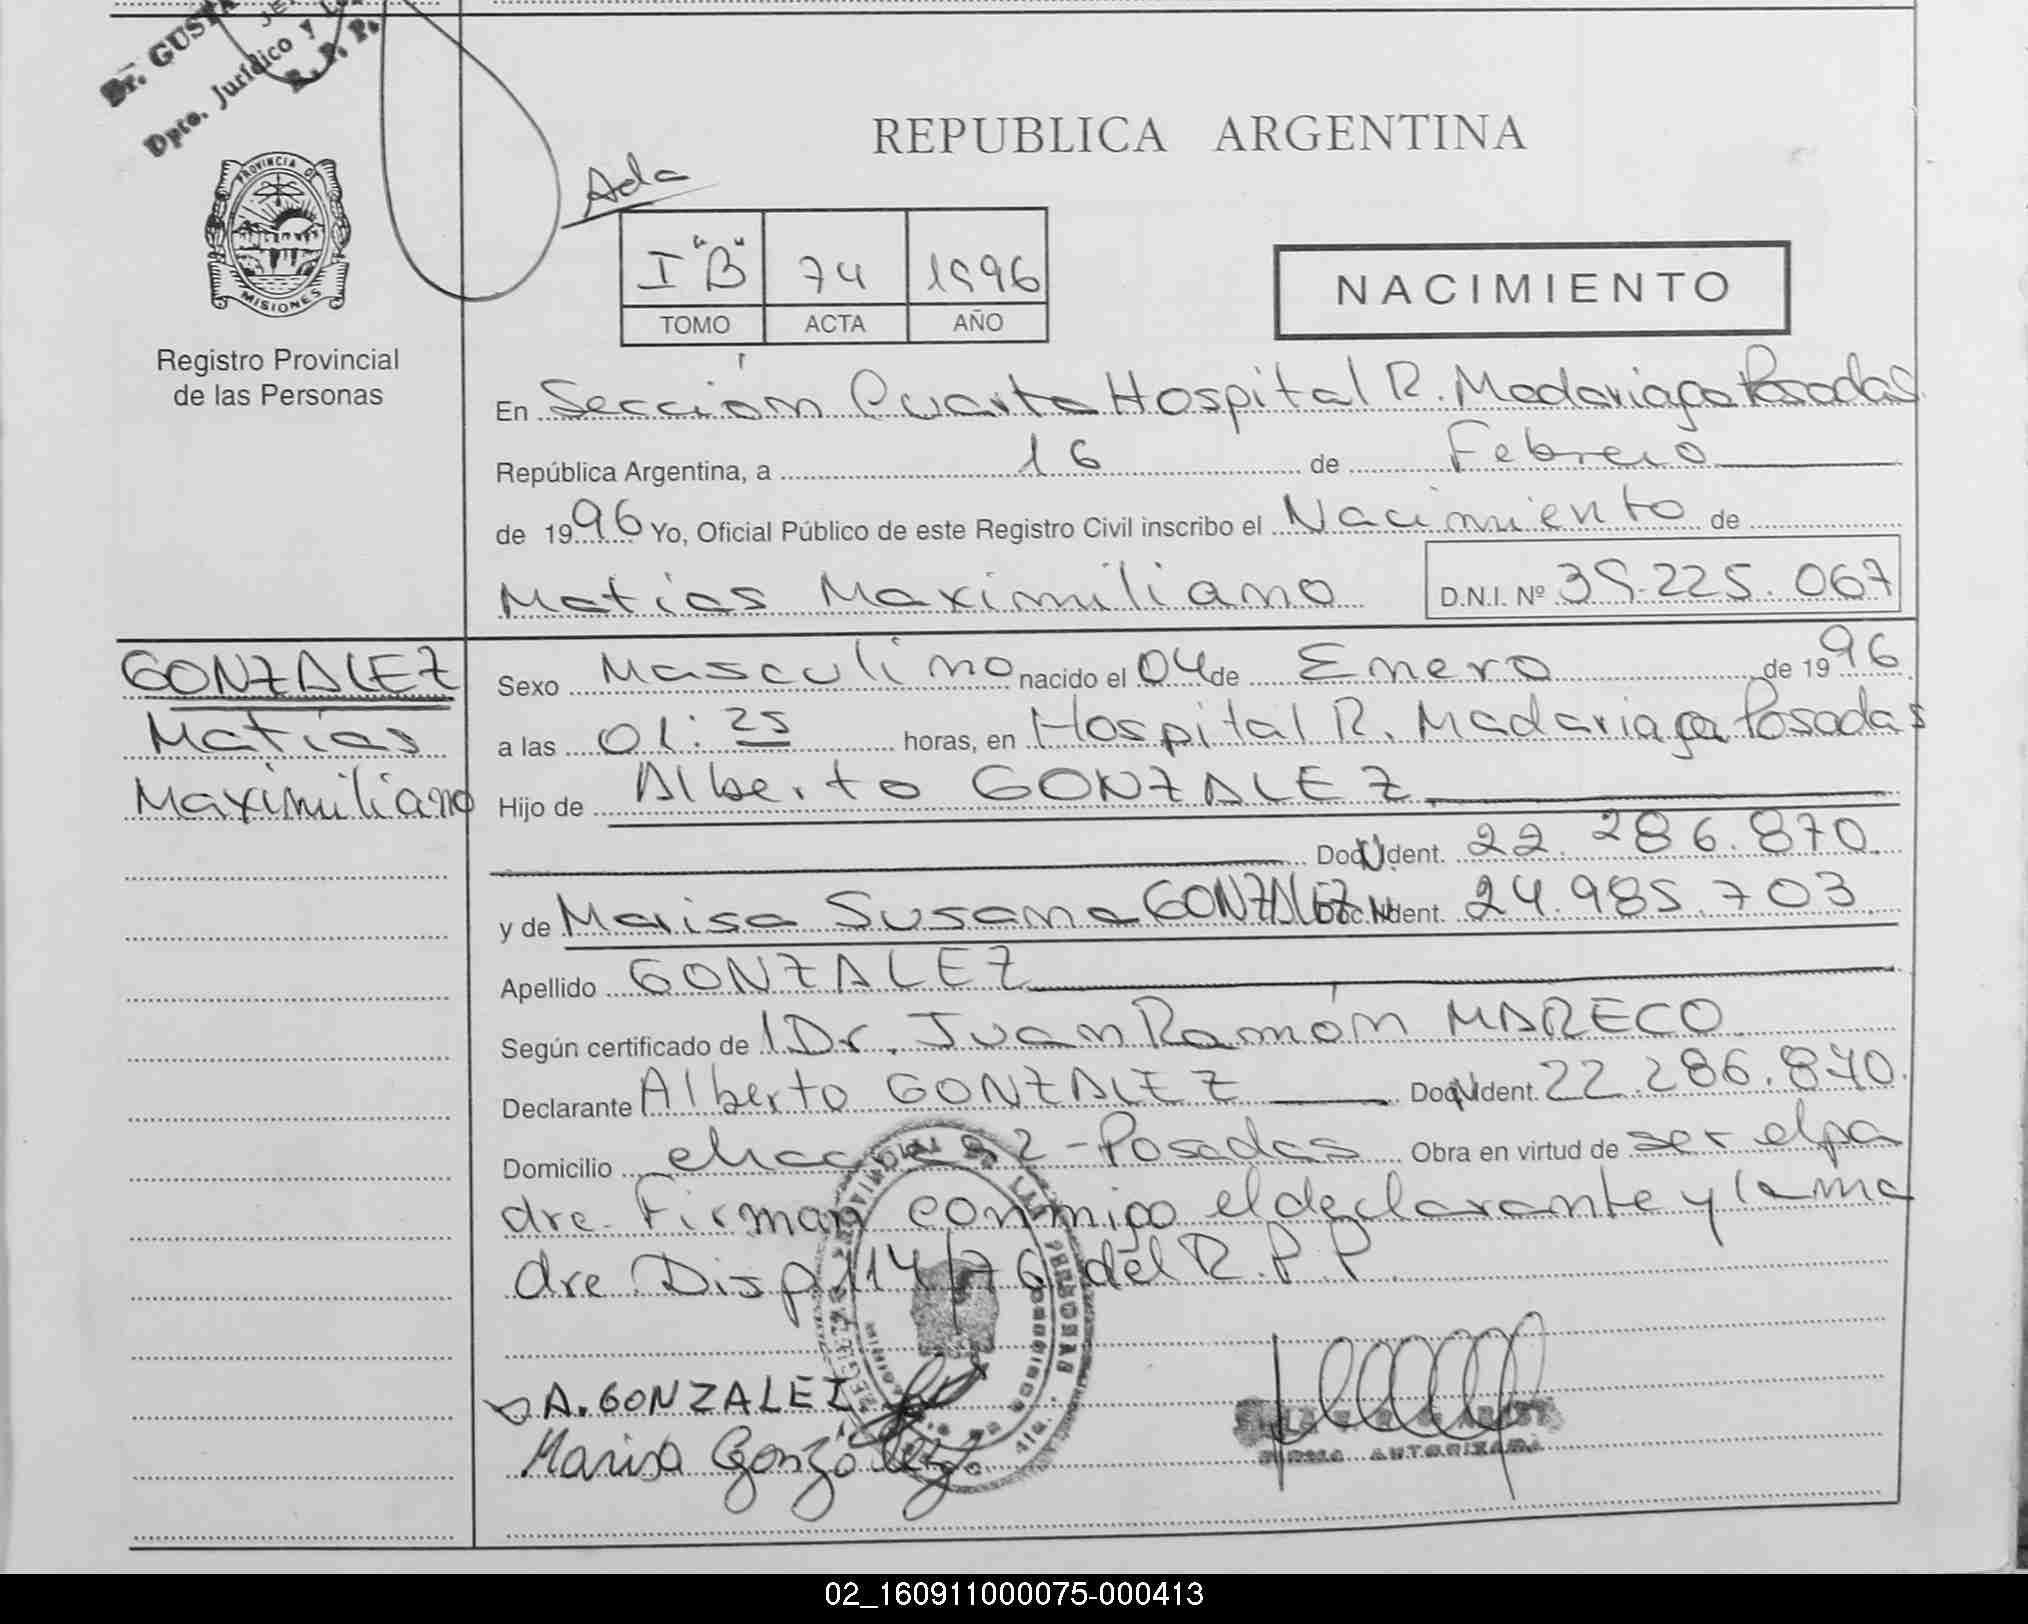 Dr. GUST
Dpto. Jurídico y
R. P. P.
PROVINCIA DE
MISIONES
Registro Provincial
de las Personas
REPUBLICA ARGENTINA
Ada
I "B" 74 1996
TOMO ACTA AÑO
NACIMIENTO
En Sección Cuarta Hospital R. Madariaga Posadas
República Argentina, a 16 de Febrero
de 1996 Yo, Oficial Público de este Registro Civil inscribo el Nacimiento de
Matías Maximiliano D.N.I. Nº 39.225.067
GONZALEZ
Matías
Maximiliano
Sexo Masculino nacido el 04 de Enero de 1996
a las 01:25 horas, en Hospital R. Madariaga Posadas
Hijo de Alberto GONZALEZ
Doc. Ident. 22.286.870
y de Marisa Susana GONZALEZ Doc. Ident. 24.985.703
Apellido GONZALEZ
Según certificado de l Dr. Juan Ramón MARECO
Declarante Alberto GONZALEZ Doc. Ident. 22.286.870
Domicilio chacra 2 - Posadas Obra en virtud de ser el pa
dre. Firman conmigo el declarante y la ma
dre. Disp. 114/76 del R.P.P.
A. GONZALEZ
Marisa González
FIRMA AUTORIZADA
02_160911000075-000413